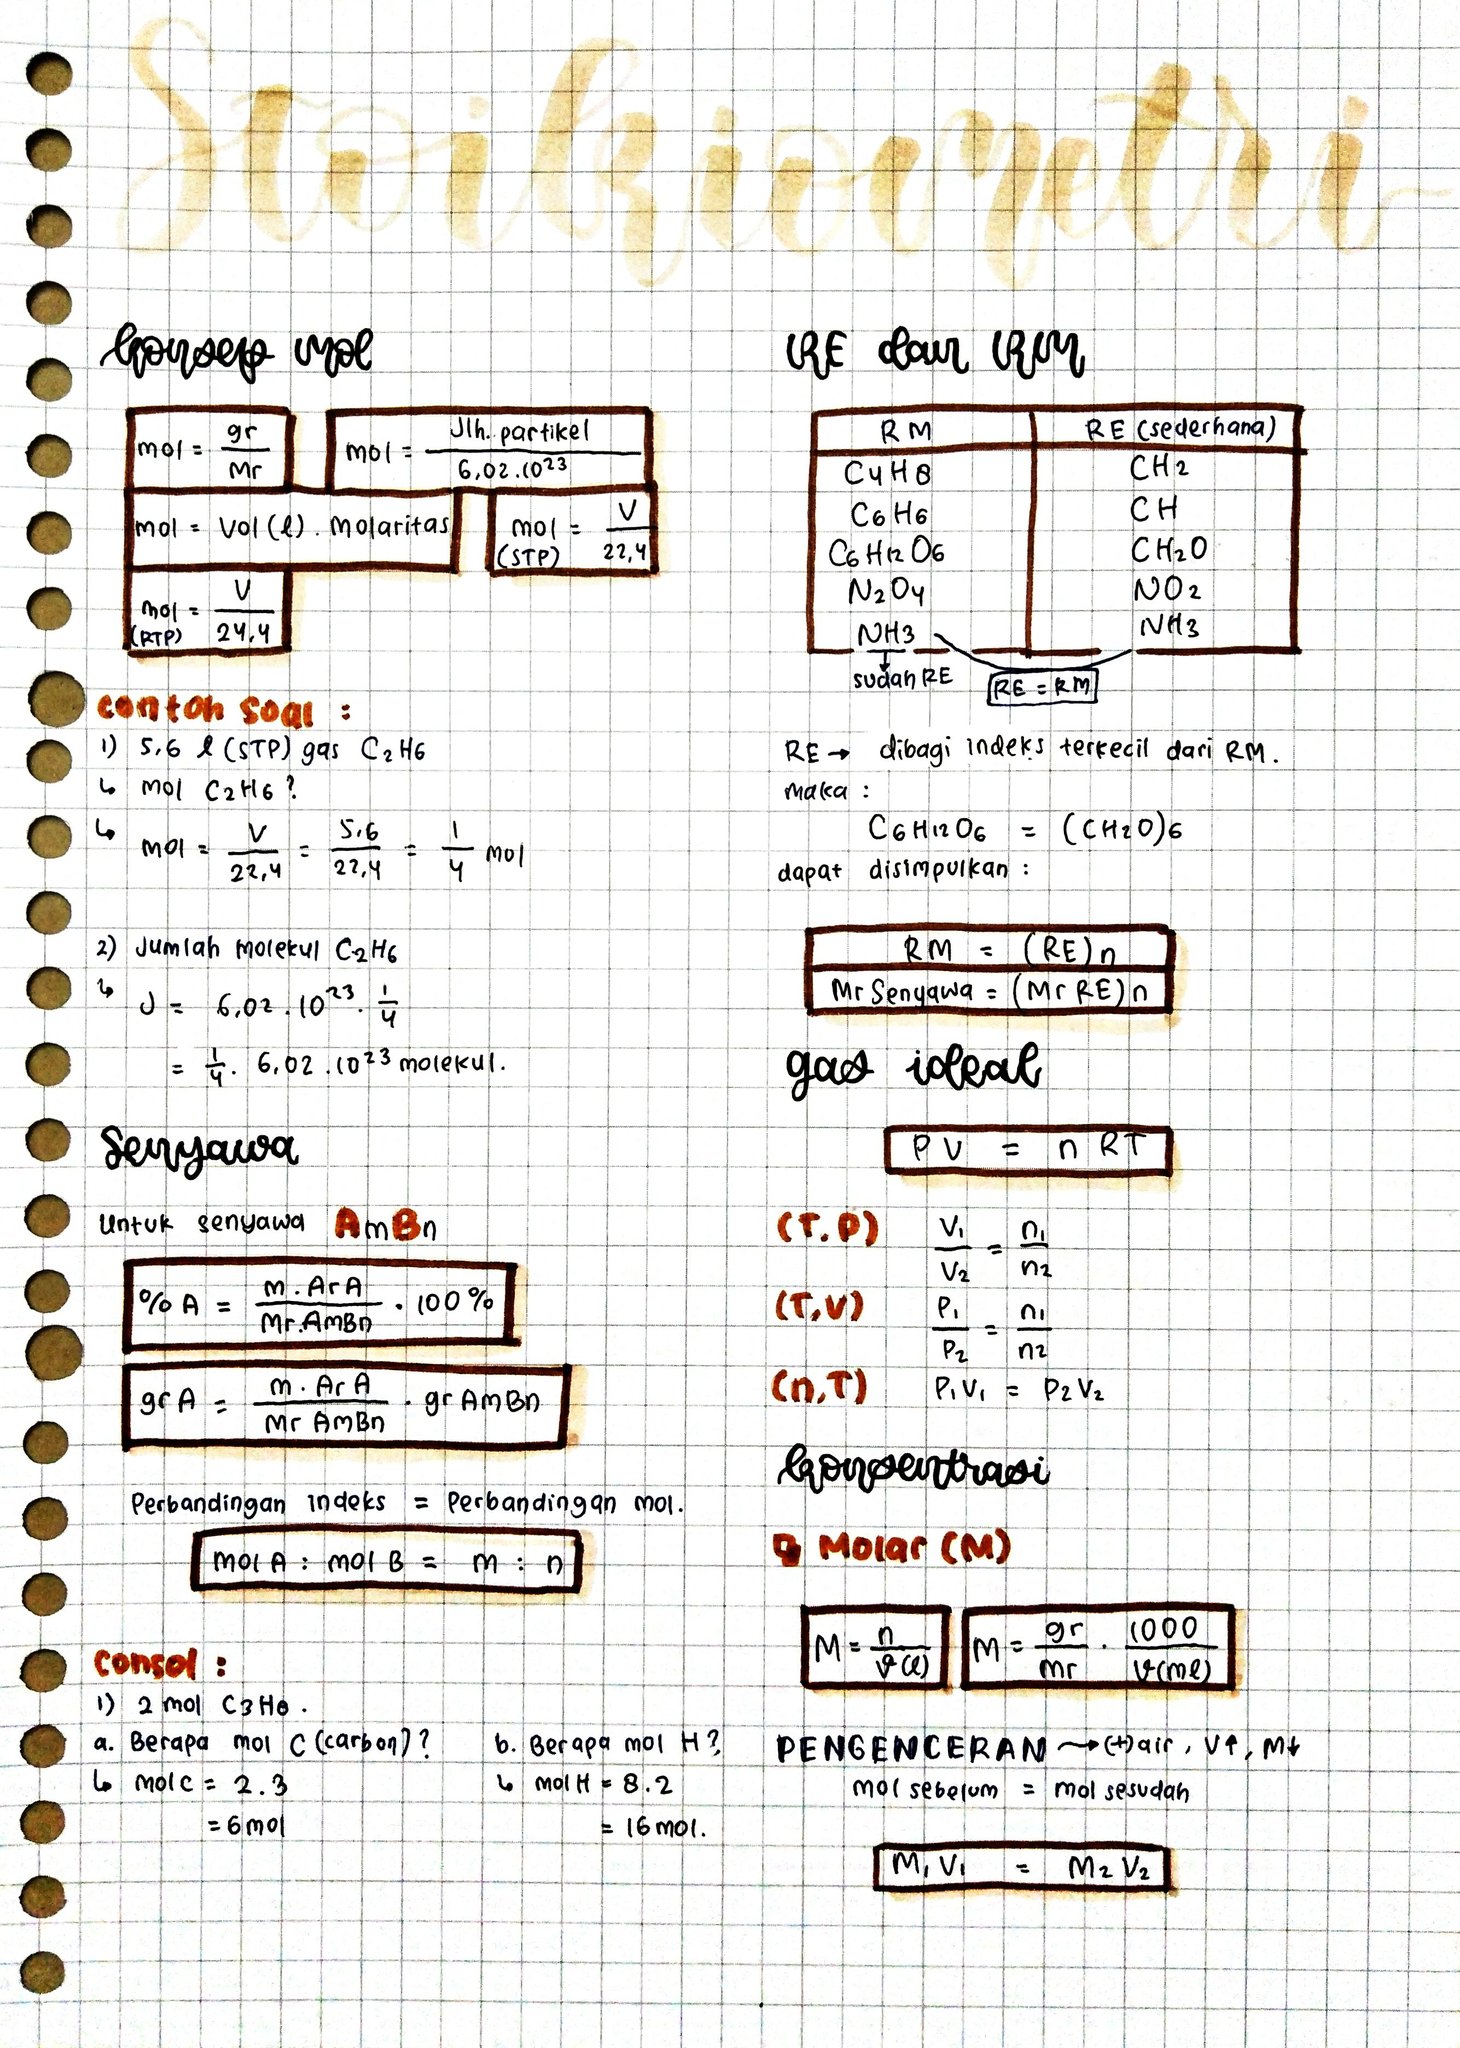 Stoikiometri
konsep mol
mol = gr / Mr
mol = Jlh. partikel / 6,02.10²³
mol = Vol(l). Molaritas
mol (STP) = V / 22,4
mol (RTP) = V / 24,4
contoh soal :
1) 5,6 l (STP) gas C2H6
↳ mol C2H6?
↳ mol = V / 22,4 = 5,6 / 22,4 = 1 / 4 mol
2) Jumlah molekul C2H6
↳ J = 6,02.10²³. 1/4
= 1/4. 6,02.10²³ molekul.
Senyawa
Untuk senyawa AmBn
% A = m. Ar A / Mr. AmBn . 100%
gr A = m. Ar A / Mr AmBn . gr AmBn
Perbandingan indeks = Perbandingan mol.
mol A : mol B = m : n
consol :
1) 2 mol C3H8.
a. Berapa mol C (carbon)?
↳ mol C = 2.3
= 6 mol
b. Berapa mol H?
↳ mol H = 8.2
= 16 mol.
RE dan RM
RM RE (sederhana)
C4H8 CH2
C6H6 CH
C6H12O6 CH2O
N2O4 NO2
NH3 NH3
sudah RE
RE = RM
RE → dibagi indeks terkecil dari RM.
maka :
C6H12O6 = (CH2O)6
dapat disimpulkan :
RM = (RE)n
Mr Senyawa = (Mr RE)n
gas ideal
PV = n RT
(T.P) V1 / V2 = n1 / n2
(T,V) P1 / P2 = n1 / n2
(n,T) P1V1 = P2V2
konsentrasi
↳ Molar (M)
M = n / v(l)
M = gr / mr . 1000 / v(ml)
PENGENCERAN → (+) air, V↑, M↓
mol sebelum = mol sesudah
M1V1 = M2V2